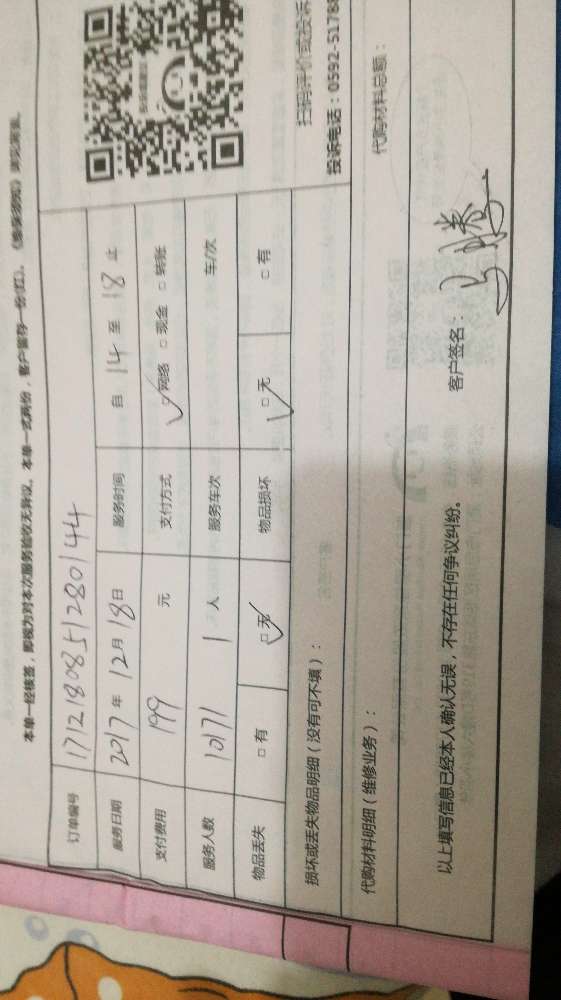 本单一经核签，即视为对本次服务验收无异议。本单一式两份，客户留存一份(红)。
订单编号 1712180851280144
服务日期 2017年12月18日 服务时间 自14至18止
支付费用 199元 支付方式 网络 □现金 □转账
服务人数 10171 1人 服务车次 车/次
物品丢失 □有 □无 物品损坏 □无 □有
扫码评价或投诉
投诉电话：0592-51768
损坏或丢失物品明细（没有可不填）：
代购材料明细（维修业务）： 代购材料总额：
以上填写信息已经本人确认无误，不存在任何争议纠纷。 客户签名：